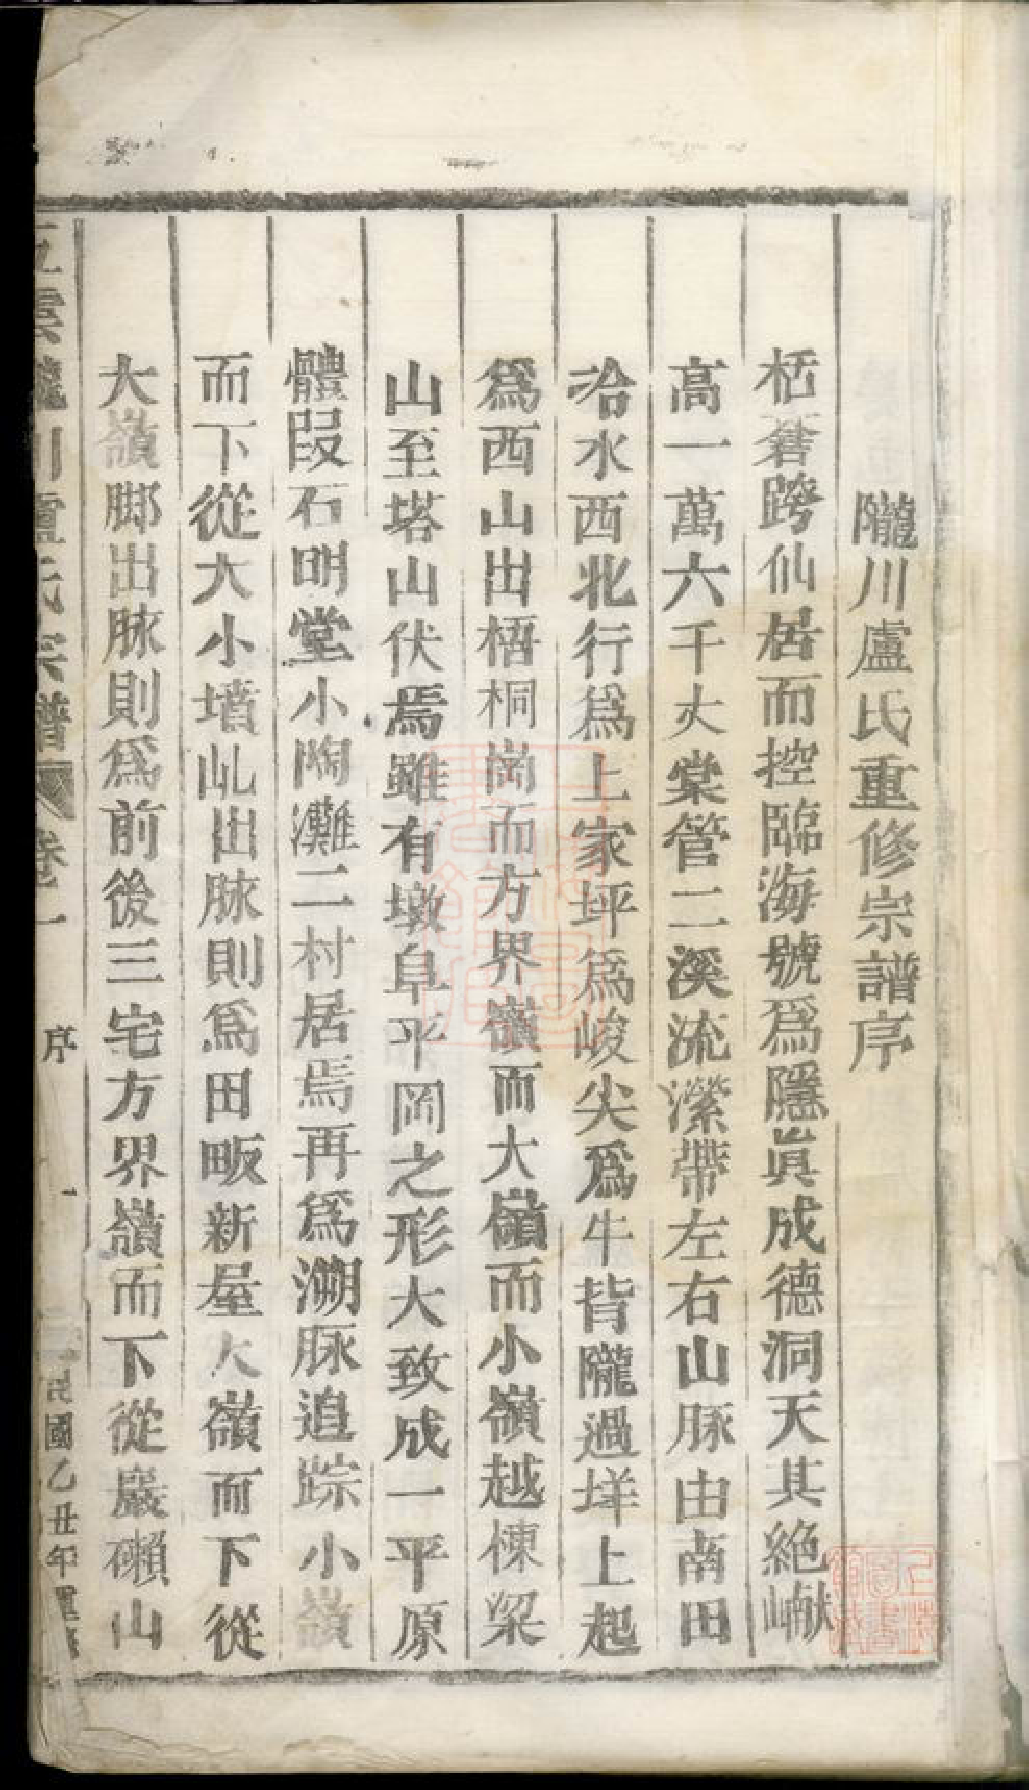 隴川盧氏重修宗譜序
栝蒼跨仙居而控臨海號爲隱眞成德洞天其絶巘
高一萬六千丈棠管二溪流瀠帶左右山脉由南田
冾水西北行爲上家坪爲峻尖爲牛背隴過垟上起
爲西山出梧桐崗而方界嶺而大嶺而小嶺越棟梁
山至塔山伏焉雖有墩阜平岡之形大致成一平原
體段石明堂小陶灘二村居焉再爲溯脉追踪小嶺
而下從大小墳山出脉則爲田畈新屋大嶺而下從
大嶺脚出脉則爲前後三宅方界嶺而下從巖瀨山
五雲隴川盧氏宗譜 卷一 序 一 民國乙丑年重修
上海圖書館藏